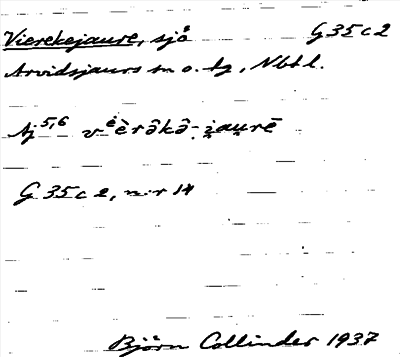 Vierekejaure, sjö G 35 c 2
Arvidsjaurs sn o. tg, Nbtl.
Aj 5,6 vèrə̂kə̂-i̯au̯rē
G 35 c 2, nr 14
Björn Collinder 1937